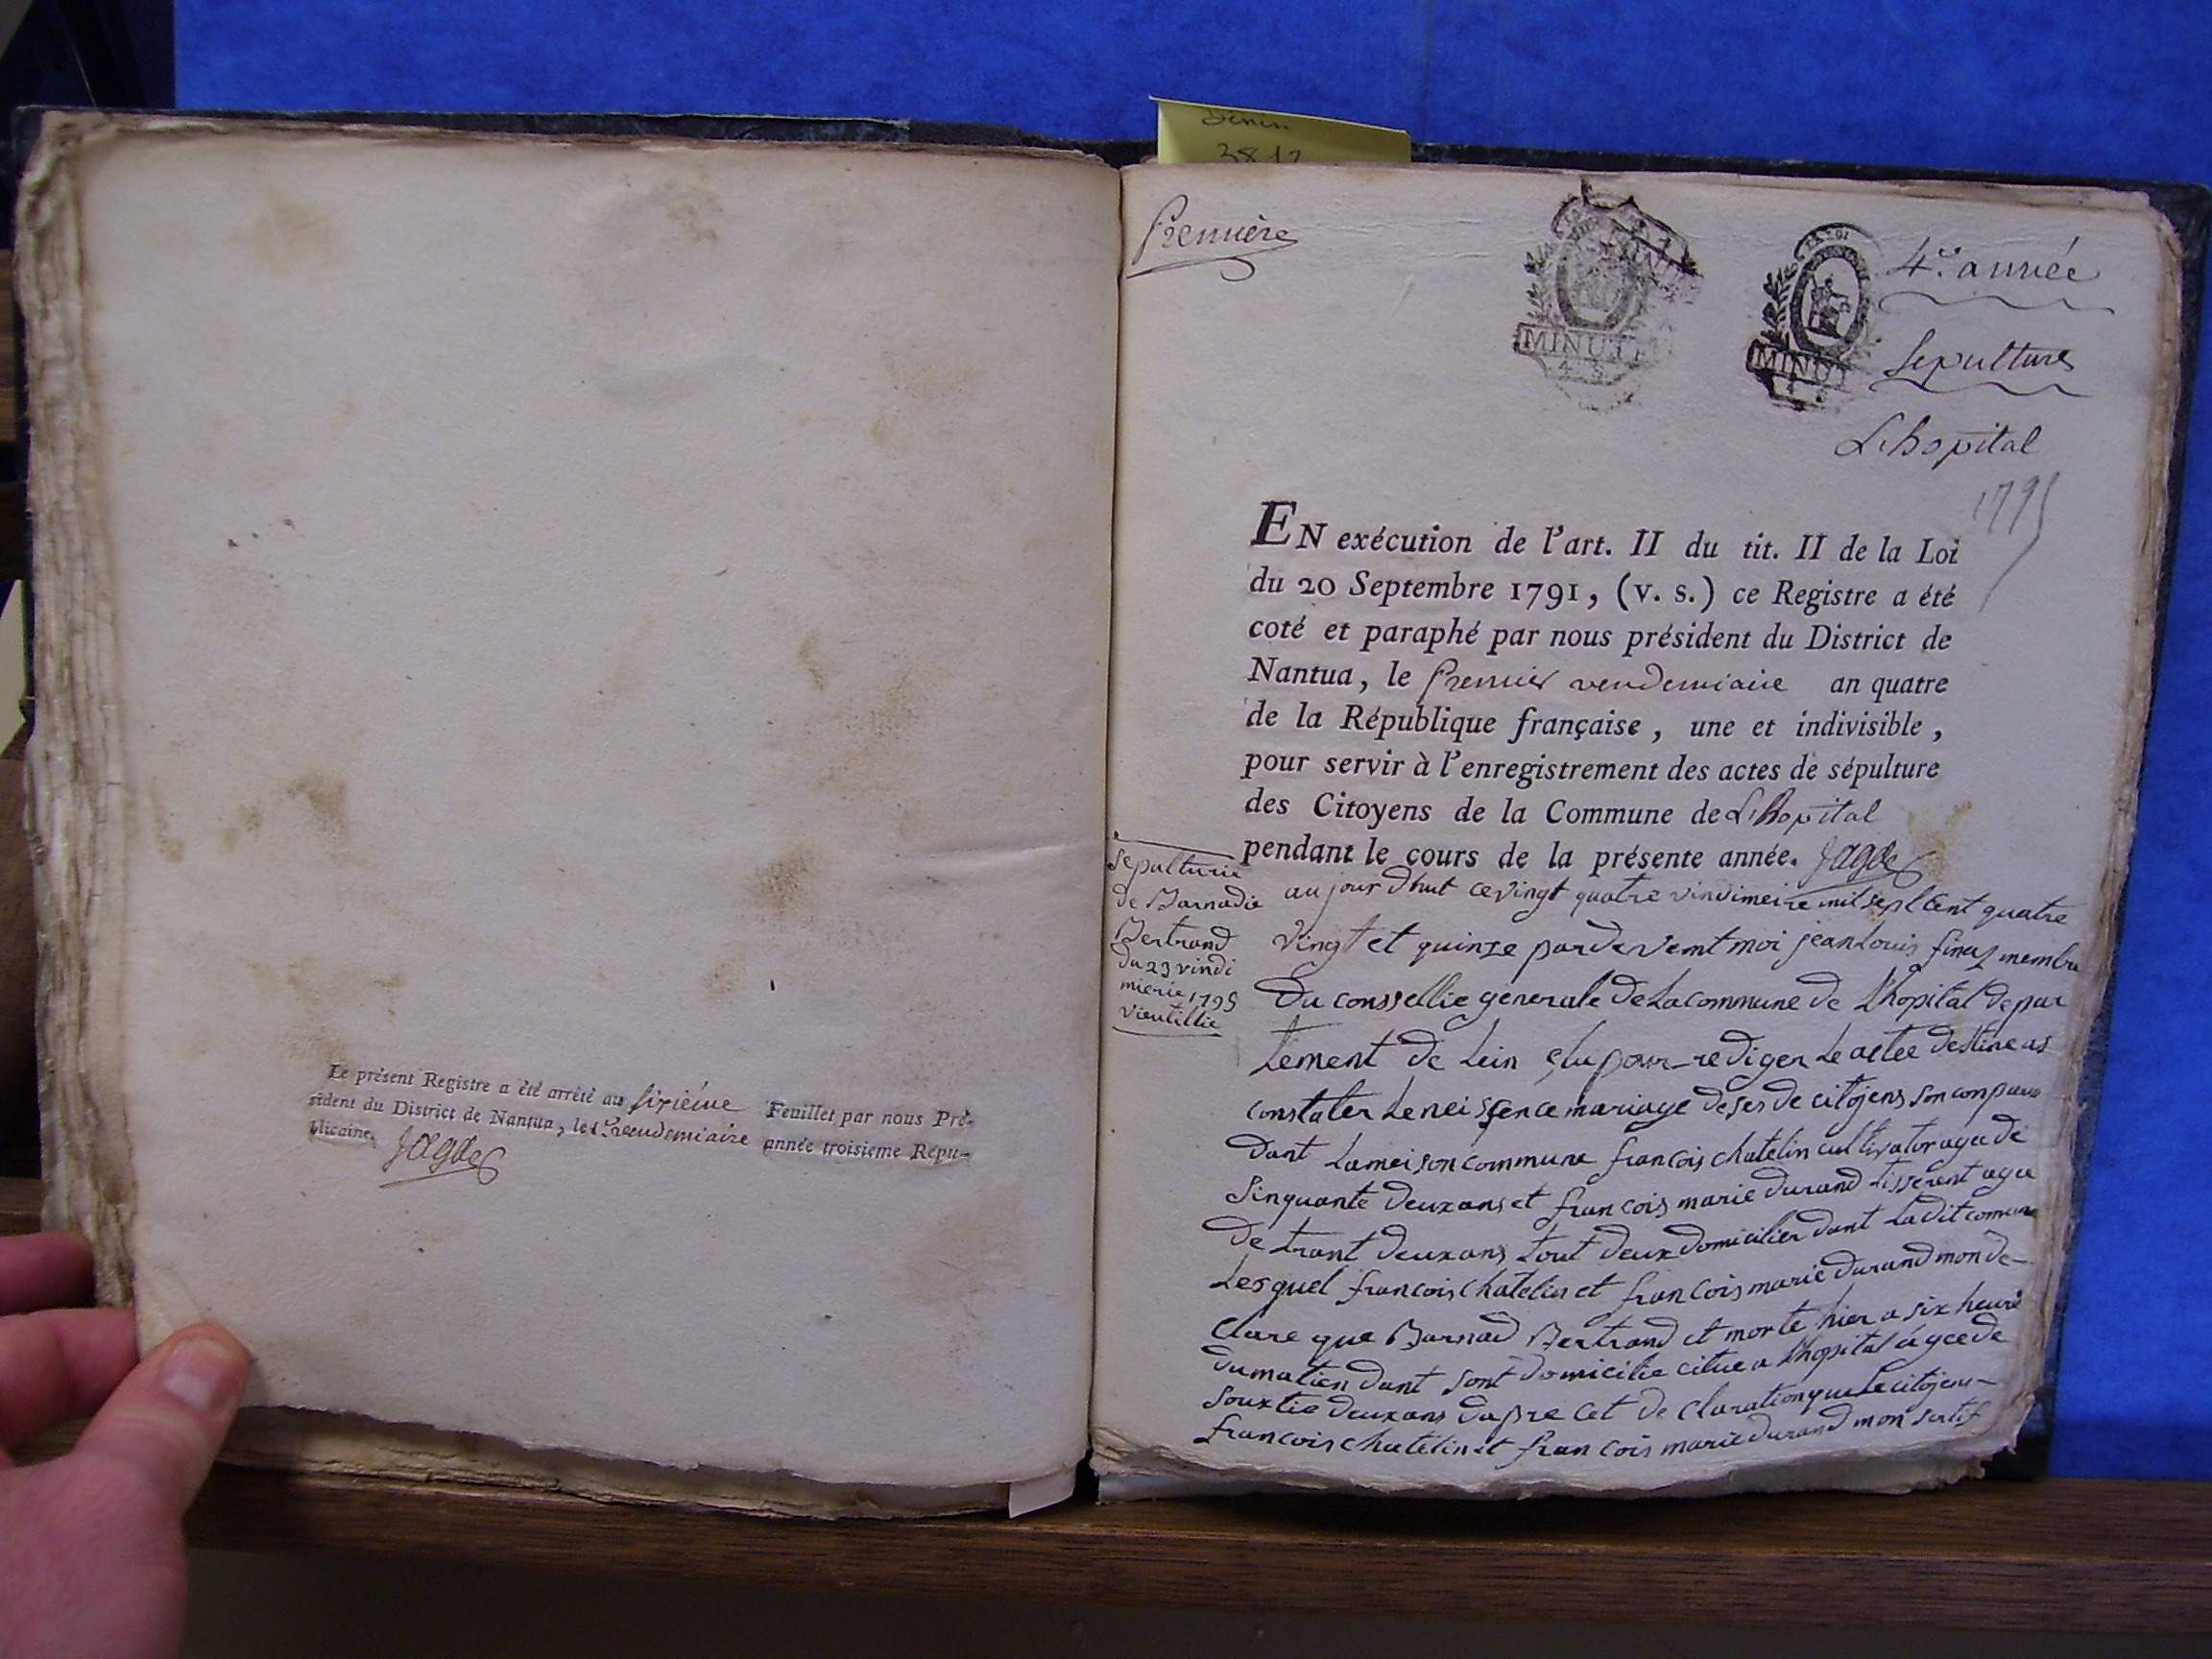 Le présent Registre a été arrêté au sixiéme Feuillet par nous Pré-
sident du District de Nantua, le 1er vendemiaire année troisieme Répu-
blicaine. Jagde
38
Premiére
MINUTE
4 S
MINUT
4e année
sepultures
Lhopital
1795
EN exécution de l'art. II du tit. II de la Loi
du 20 Septembre 1791, (v. s.) ce Registre a été
coté et paraphé par nous président du District de
Nantua, le Premier vendemiaire an quatre
de la République française, une et indivisible,
pour servir à l'enregistrement des actes de sépulture
des Citoyens de la Commune de Lhopital
pendant le cours de la présente année. Jagde
sepulturie
de Barnadie
Bertrand
du 23 vindi
mierie 1795
vieutillie
au jour dhut ce vingt quatre vindimeire mil sept cent quatre
vingt et quinze pardevemt moi jean Louis finaz membre
Du conssellie generale de La commune de Lhopital depar
tement de Lein elu pour rediger Le actee destine as
constater Le neissence mariage deses de citojens son conparu
Dant La meison commune francois chatelin cultivator agee de
sinquante deux ans et francois marie durand tisserent agee
De trant deux ans tout deux domicilier dant La dit comune
Lesquel francois chatelin et francois marie durand mon de-
clare que Barnad Bertrand et morte hier a six heure
du matien dant sont domicilie citue a Lhopital agee de
souxtie deux ans dapre cet de claration que Le citojens-
francois chatelin et francois marie durand mon sertif